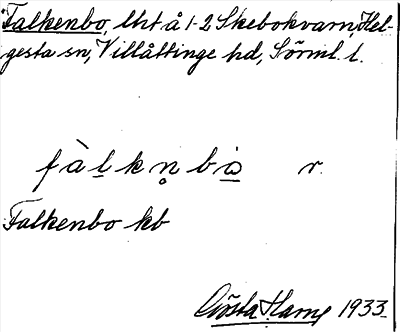 Falkenbo, lht å 1-2 Skebokvarn, Hel-
gesta sn, Villåttinge hd, Sörml. l.
fàlkn̥bo̱ r.
Falkenbo kb
Gösta Hamp 1933.